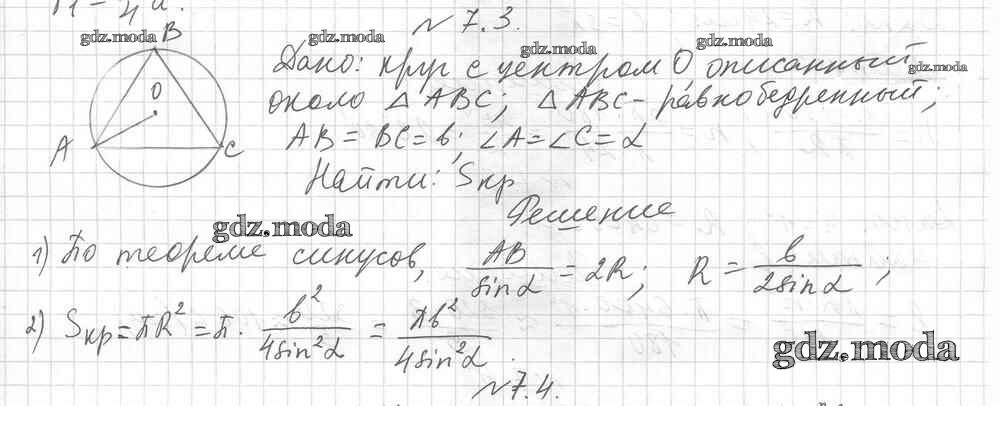 № 7.3.
gdz.moda
gdz.moda
gdz.moda
gdz.moda
gdz.moda
B
O
A
C
Дано: круг с центром O, описанный
около △ABC; △ABC - равнобедренный;
AB = BC = b; ∠A = ∠C = α
Найти: Sкр
Решение
gdz.moda
1) По теореме синусов, AB/sinα = 2R; R = b/2sinα ;
2) Sкр = πR² = π · b²/4sin²α = πb²/4sin²α .
gdz.moda
№ 7.4.